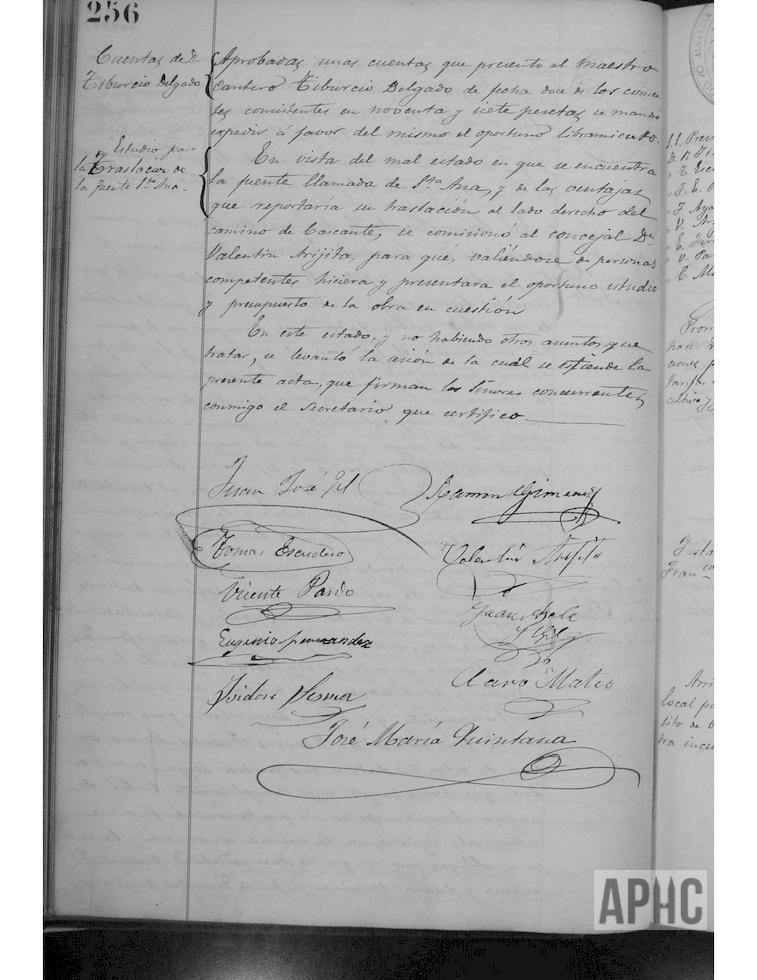 256
Cuentas de D.
Tiburcio Delgado
Aprobadas unas cuentas que presentó el maestro
cantero Tiburcio Delgado de fecha doce de los corrien-
tes consistentes en noventa y siete pesetas se mandó
expedir á favor del mismo el oportuno libramiento.
Estudio para
la traslacion de
la fuente Sta. Ana.
En vista del mal estado en que se encuentra
la fuente llamada de Sta. Ana, y de las ventajas
que reportaría su traslación al lado derecho del
camino de Cascante, se comisionó al concejal Dn.
Valentin Arijita, para qué, valiéndose de personas
competentes hiciera y presentara el oportuno estudio
y presupuesto de la obra en cuestión
En este estado, y no habiendo otros asuntos que
tratar, se levantó la sesión de la cuál se estiende la
presente acta, que firman los Señores concurrentes
conmigo el Secretario que certifico
Juan José Gil
Ramon Gimenez
Tomas Escudero
Valentin Arijita
Vicente Pardo
Eugenio Fernandez
Claro Mateo
Isidoro Sesma
José María Quintana
APHC